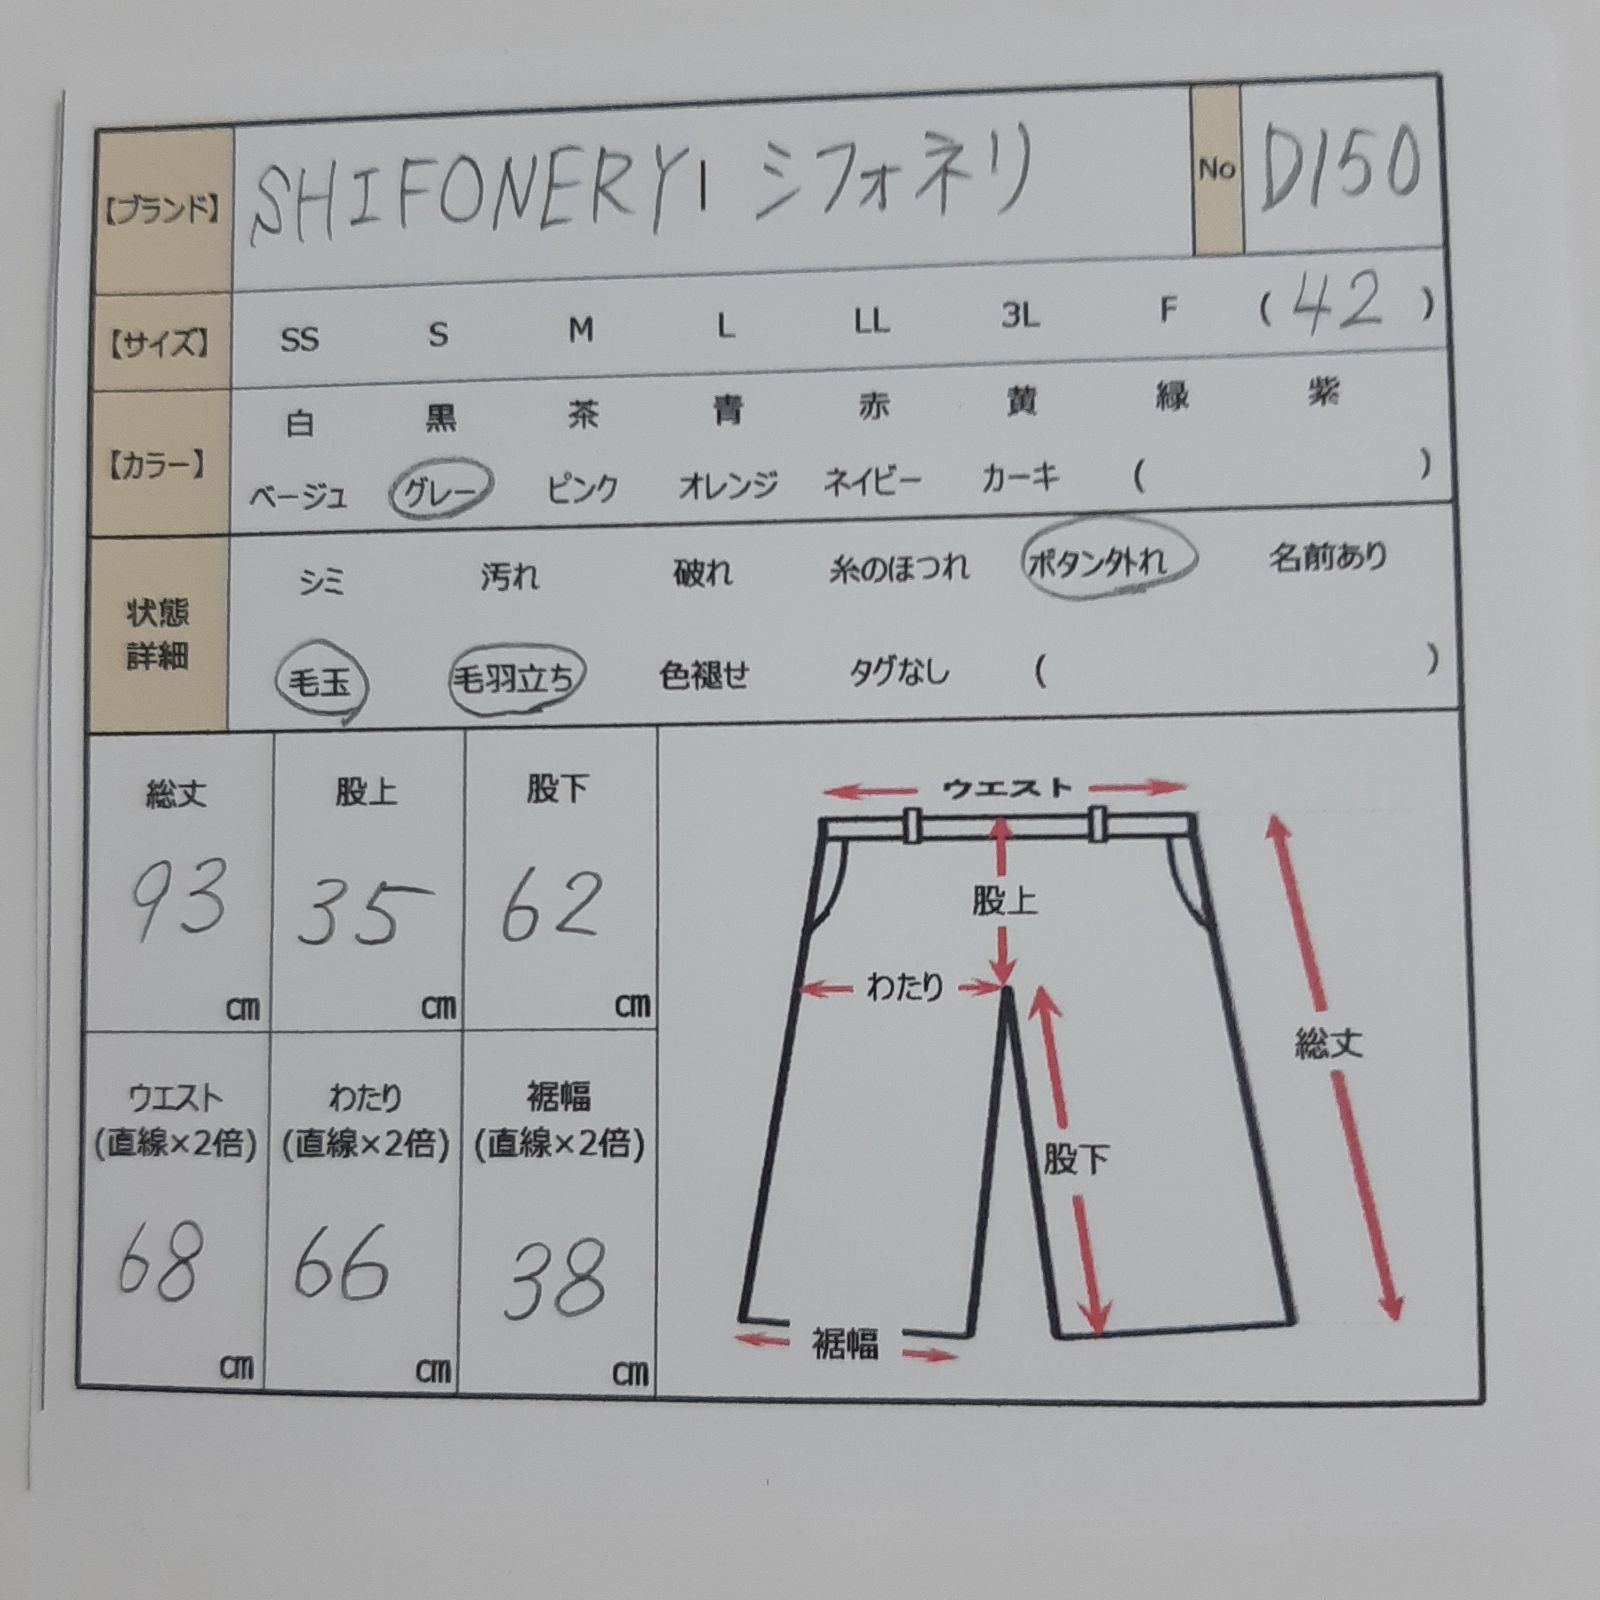 【ブランド】 SHIFONERY | シフォネリ No D150
【サイズ】 SS S M L LL 3L F ( 42 )
【カラー】 白 黒 茶 青 赤 黄 緑 紫
ベージュ グレー ピンク オレンジ ネイビー カーキ ( )
状態詳細 シミ 汚れ 破れ 糸のほつれ ボタン外れ 名前あり
毛玉 毛羽立ち 色褪せ タグなし ( )
総丈 股上 股下
93 35 62
cm cm cm
ウエスト わたり 裾幅
(直線×2倍) (直線×2倍) (直線×2倍)
68 66 38
cm cm cm
ウエスト
股上
わたり
総丈
股下
裾幅